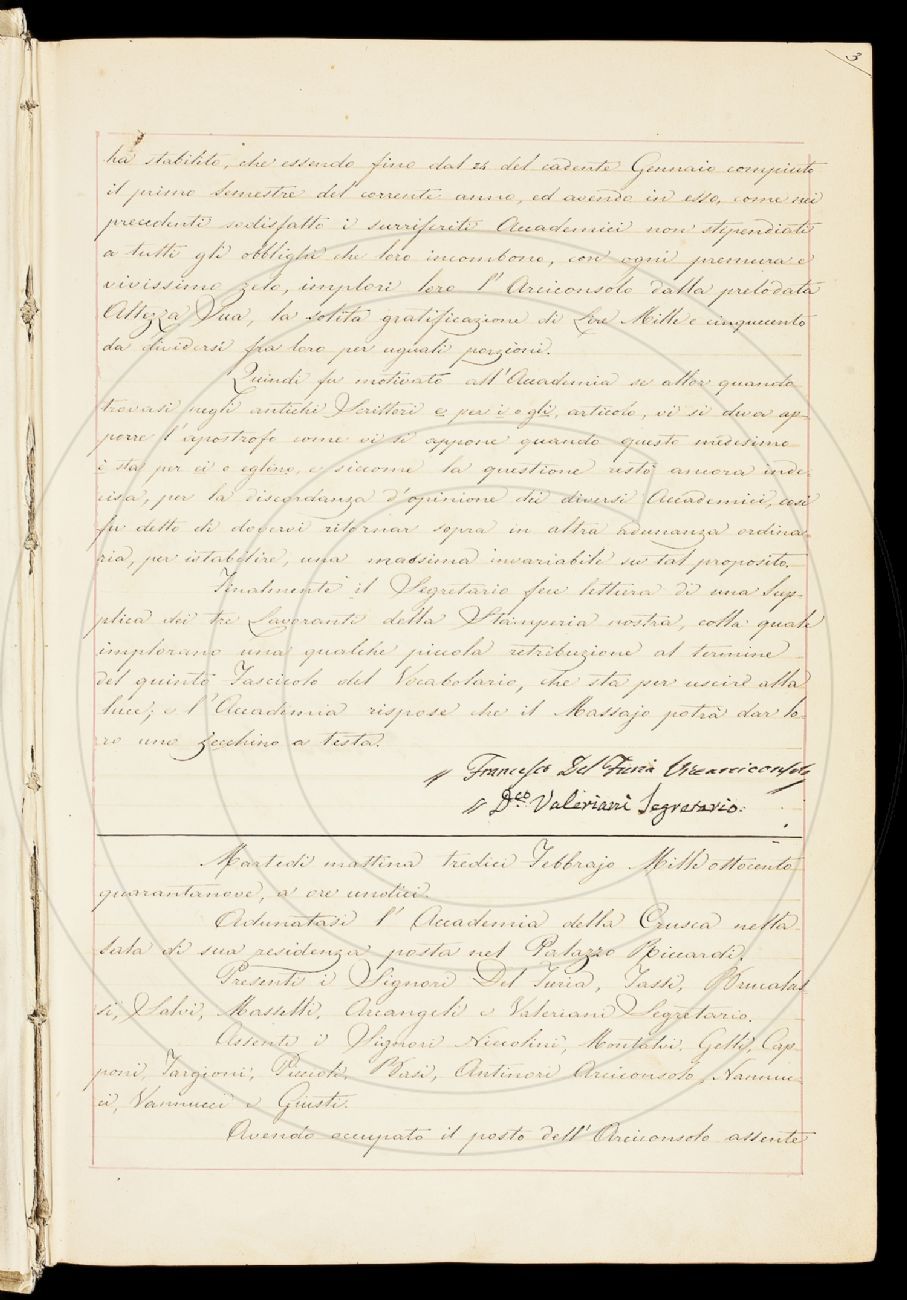 3
ha stabilito, che essendo fino dal 24 del cadente Gennaio compiuto
il primo Semestre del corrente anno, ed avendo in esso, come nei
precedenti sodisfatto i surriferiti Accademici non stipendiati
a tutti gli obblighi che loro incombono, con ogni premura e
vivissimo zelo, implori loro l'Arciconsolo dalla prelodata
Altezza Sua, la solita gratificazione di Lire Mille e cinquecento
da dividersi fra loro per uguali porzioni.
Quindi fu motivato all'Accademia se allor quando
trovasi negli antichi Scrittori e per i o gli, articolo, vi si deva ap-
porre l'apostrofo come vi si appone quando questo medesimo
e sta per ei o eglino, e siccome la questione restò ancora inde-
cisa, per la discordanza d'opinione dei diversi Accademici, così
fu detto di dovervi ritornar sopra in altra adunanza ordina-
ria, per istabilire, una massima invariabile su tal proposito.
Finalmente il Segretario fece lettura di una Sup-
plica dei tre Lavoranti della Stamperia nostra, colla quale
implorano una qualche piccola retribuzione al termine
del quinto Fascicolo del Vocabolario, che sta per uscire alla
luce; e l'Accademia rispose che il Massajo potrà dar lo-
ro uno zecchino a testa.
" Francesco Del Furia Vicearciconsolo
" D.co Valeriani Segretario.
Martedì mattina tredici Febbrajo Mille ottocento
quarantanove, a ore undici.
Adunatasi l'Accademia della Crusca nella
sala di sua residenza posta nel Palazzo Riccardi.
Presenti i Signori Del Furia, Tassi, Brucalas-
si, Salvi, Masselli, Arcangeli e Valeriani Segretario.
Assenti i Signori Niccolini, Montalvi, Gelli, Cap-
poni, Targioni, Piccioli, Basi, Antinori Arciconsolo, Nannuc-
ci, Vannucci e Giusti.
Avendo occupato il posto dell'Arciconsolo assente